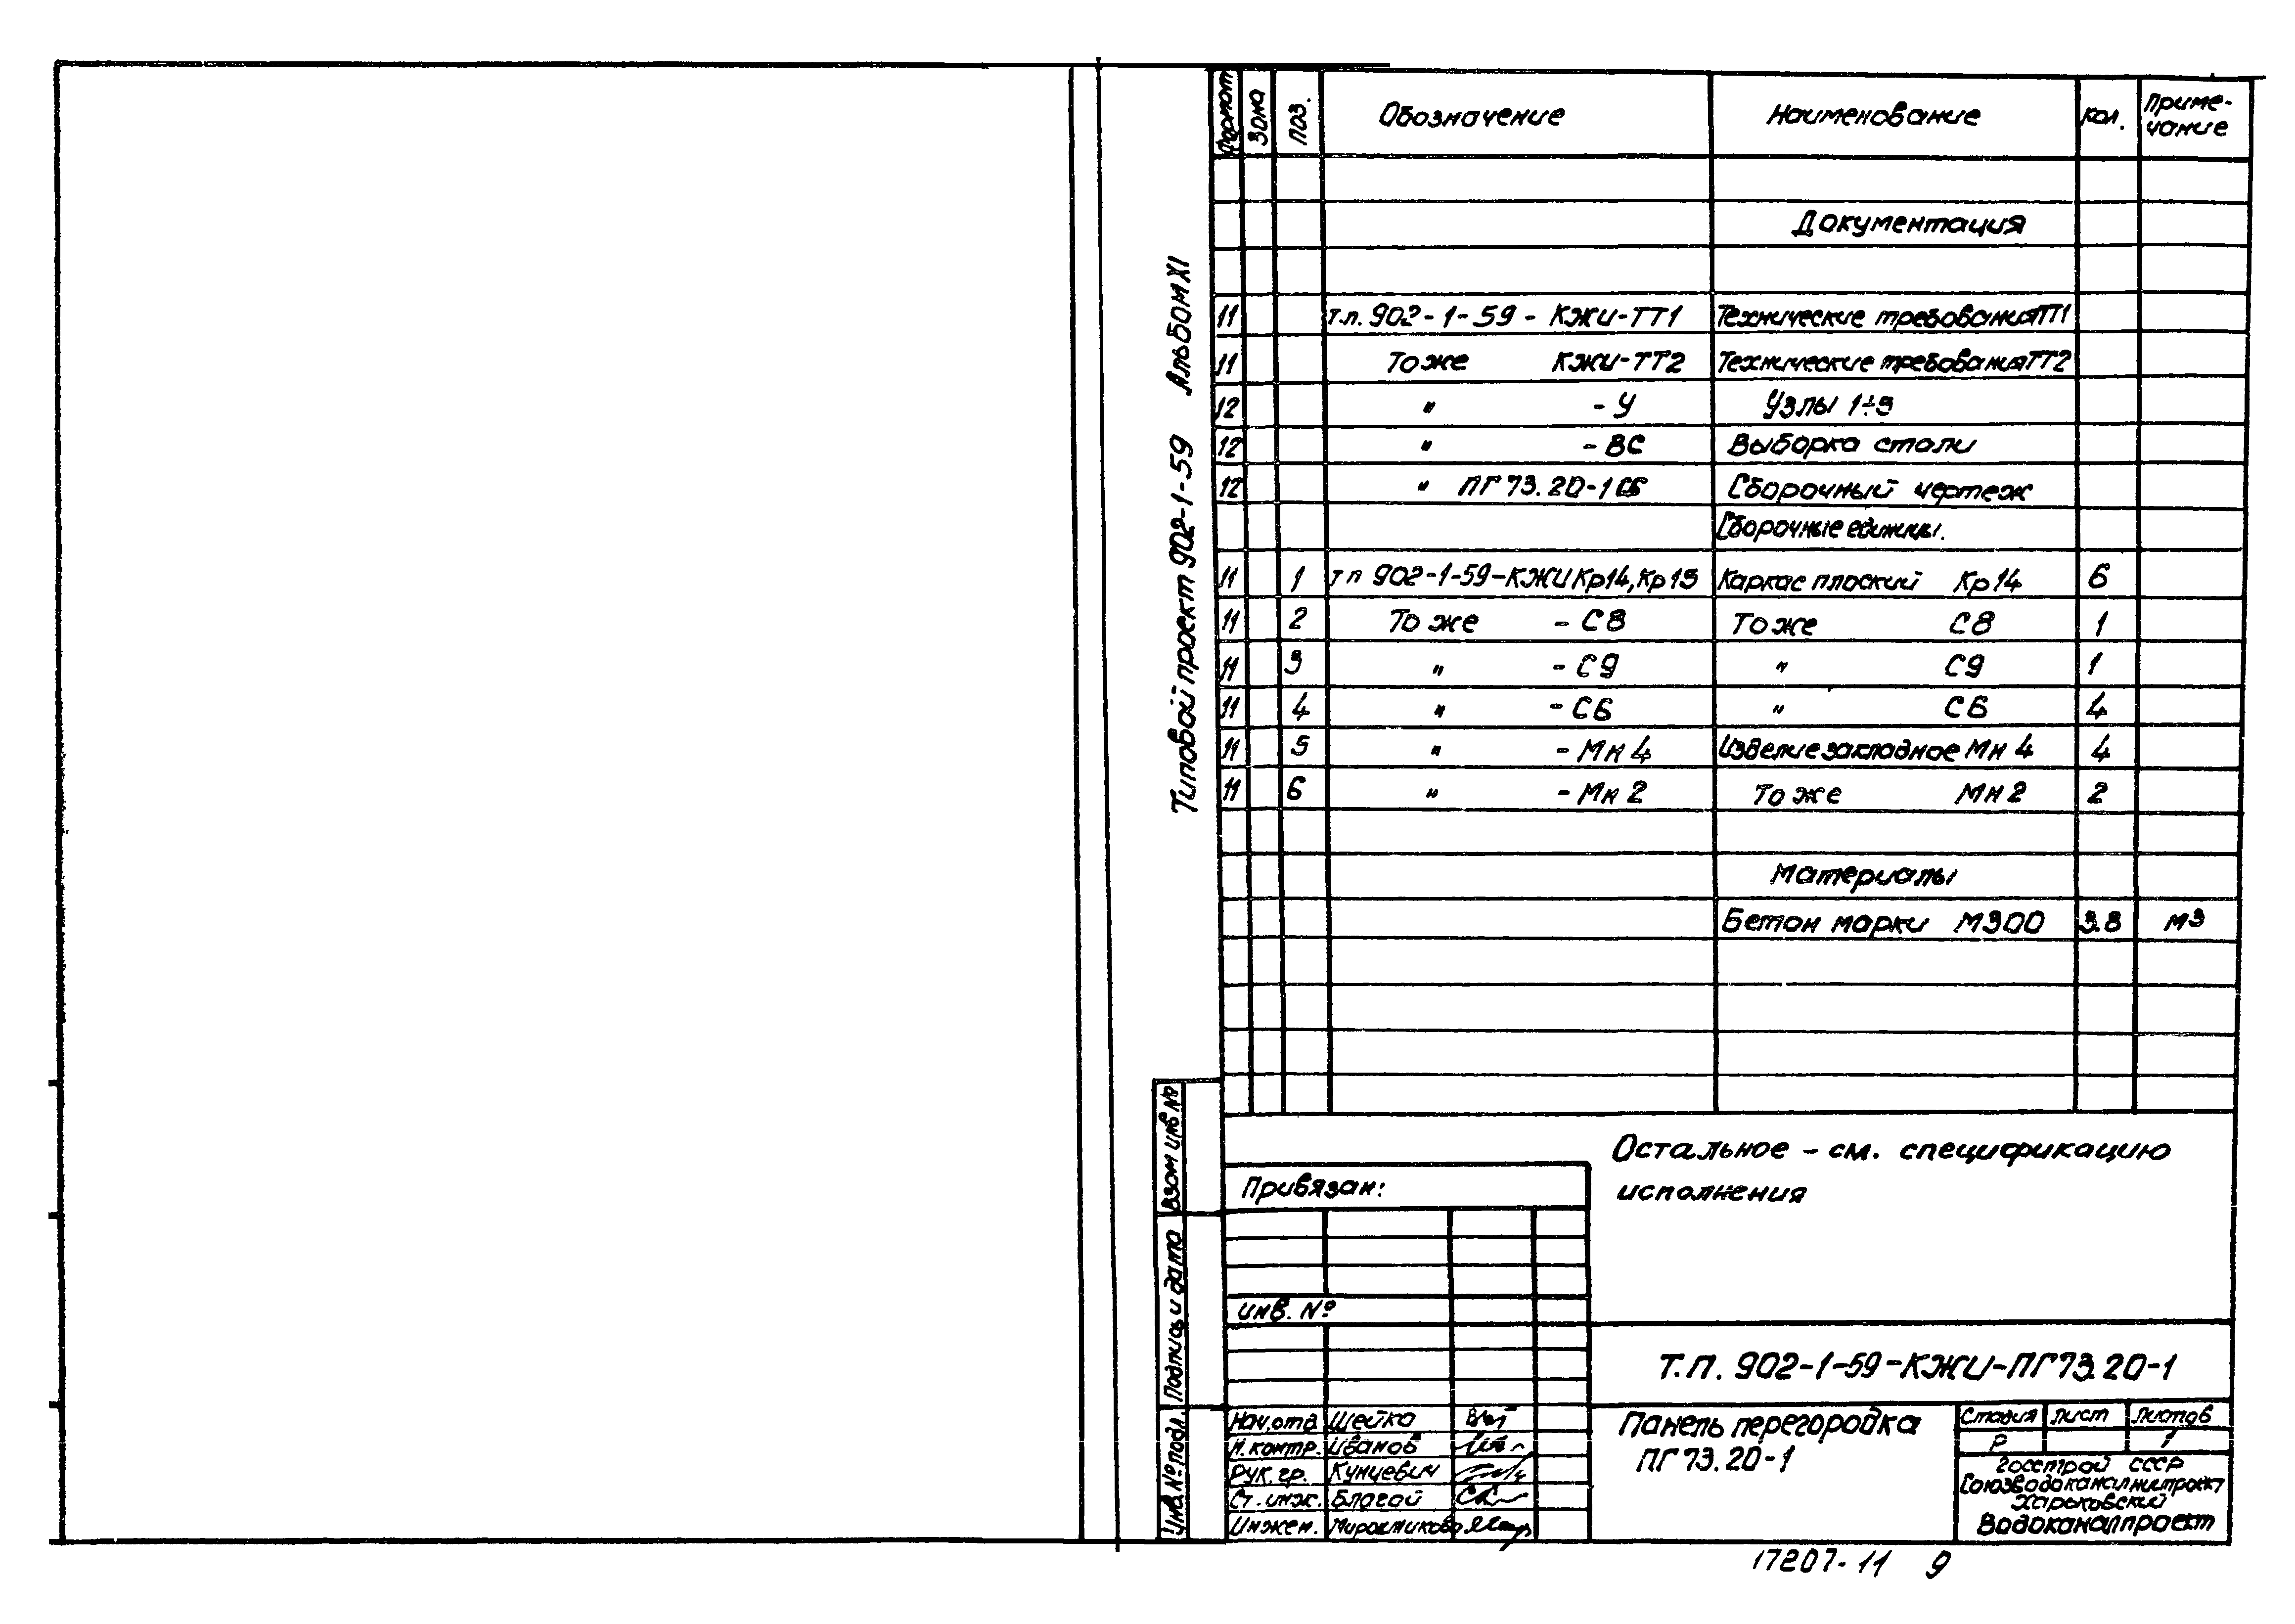 Типовой проект 902-1-59 Альбом XI
Формат Зона Поз. Обозначение Наименование Кол. Приме-
чание
Документация
11 т.п. 902-1-59-КЖИ-ТТ1 Технические требования ТТ1
11 То же КЖИ-ТТ2 Технические требования ТТ2
12 " -У Узлы 1÷5
12 " -ВС Выборка стали
12 " ПГ73.20-1СБ Сборочный чертеж
Сборочные единицы.
11 1 т п 902-1-59-КЖИ Кр14, Кр15 Каркас плоский Кр14 6
11 2 То же -С8 То же С8 1
11 3 " -С9 " С9 1
11 4 " -С6 " С6 4
11 5 " -Мн4 Изделие закладное Мн4 4
11 6 " -Мн2 То же Мн2 2
Материалы
Бетон марки М300 3.8 м3
Остальное - см. спецификацию
исполнения
Привязан:
инв. №
Взам инв №
Подпись и дата
Инв. № подл.
Т.П. 902-1-59-КЖИ-ПГ73.20-1
Нач.отд Шейко
Н.контр. Иванов
Рук.гр. Кунцевич
Ст.инж. Благой
Инжен.
Панель перегородка
ПГ73.20-1
Стадия Лист Листов
Р 1
Госстрой СССР
Союзводоканалниипроект
Харьковский
Водоканалпроект
17207-11 9